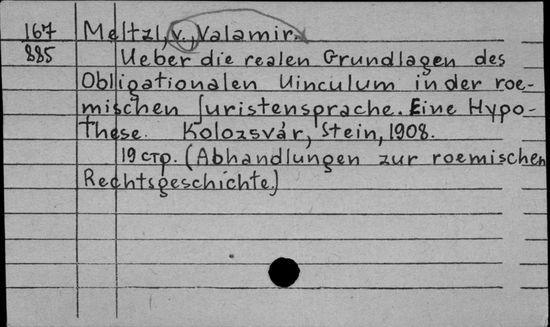 167 Meltzl, v., Valamir.
885 Ueber die realen Grundlagen des
Obligationalen Uinculum in der roe-
mischen Juristensprache. Eine Hypo-
these. Kolozsvár, Stein, 1908.
19 стр. (Abhandlungen zur roemischen
Rechtsgeschichte)